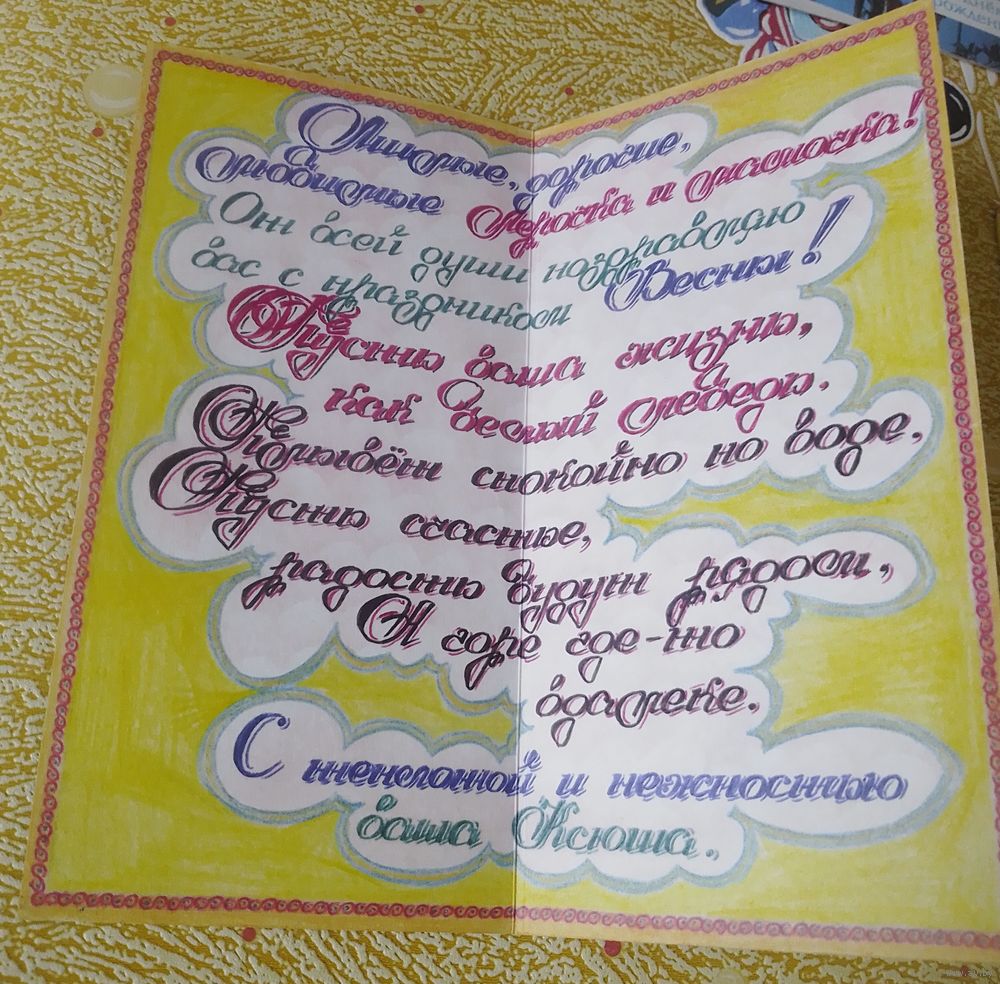 Милые, дорогие,
любимые Лерочка и мамочка!
От всей души поздравляю
вас с праздником Весны!
Пусть ваша жизнь,
как белый лебедь,
Плывёт спокойно по воде,
Пусть счастье,
радость будут рядом,
А горе где-то
вдалеке.
С теплотой и нежностью
ваша Ксюша.
www.ay.by